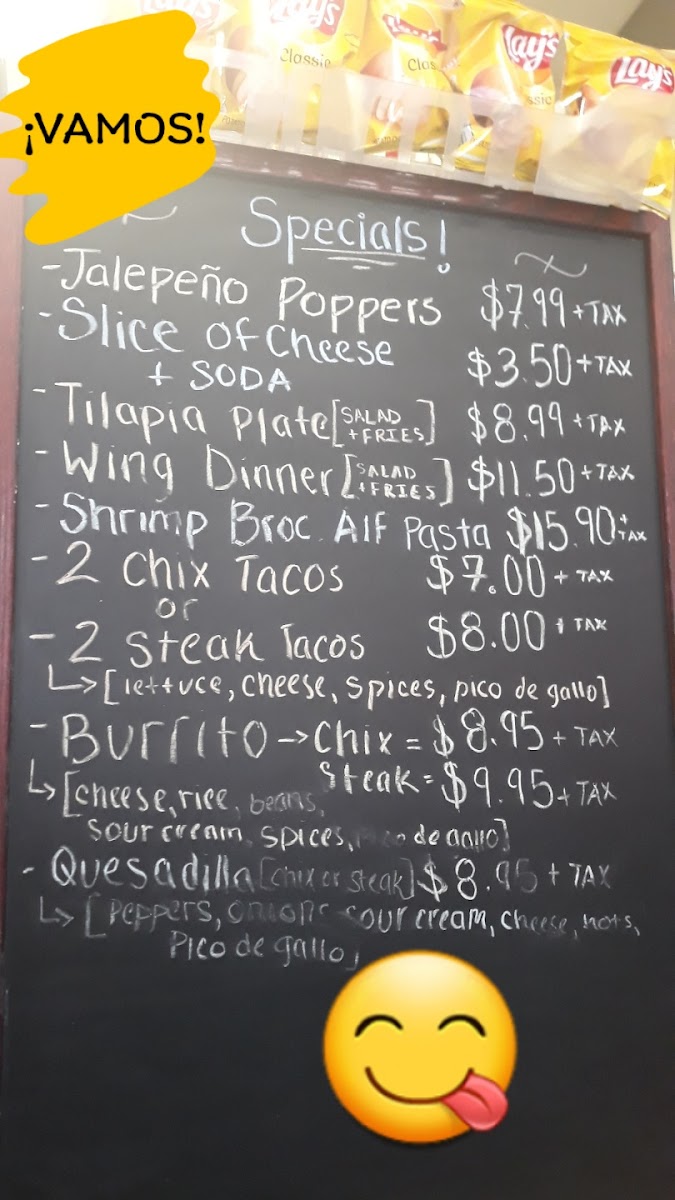 Lay's
Lay's
Lay's
Lay's
Classic
¡VAMOS!
Specials!
-Jalepeño Poppers $7.99 + TAX
-Slice of Cheese
+ SODA $3.50 + TAX
-Tilapia Plate [SALAD + FRIES] $8.99 + TAX
-Wing Dinner [SALAD + FRIES] $11.50 + TAX
-Shrimp Broc. Alf Pasta $15.90 + TAX
-2 Chix Tacos $7.00 + TAX
or
-2 Steak Tacos $8.00 + TAX
↳[lettuce, cheese, spices, pico de gallo]
-Burrito → Chix = $8.95 + TAX
Steak = $9.95 + TAX
↳[cheese, rice, beans,
sour cream, spices, pico de gallo]
-Quesadilla [chix or steak] $8.95 + TAX
↳[peppers, onions sour cream, cheese,
Pico de gallo]